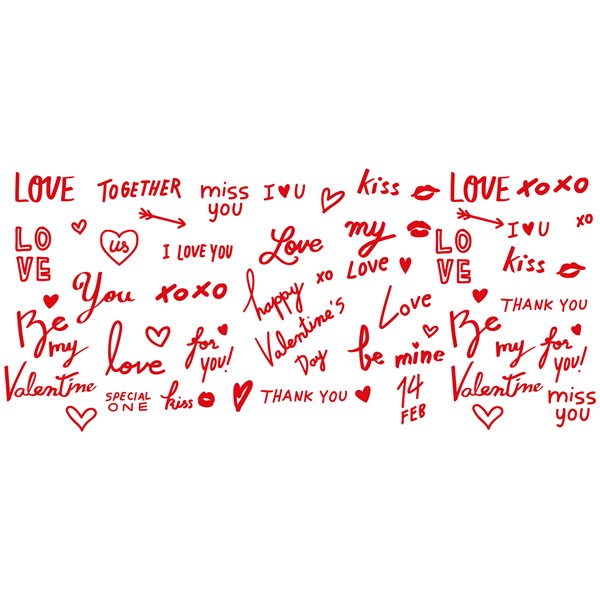 LOVE
TOGETHER
miss
you
I ♥ U
kiss
LOVE
xoxo
LO
VE
us
I LOVE YOU
Love
my
LOVE
LO
VE
I ♥ U
xo
kiss
You
xoxo
happy
xo
Valentine's
Day
Love
THANK YOU
Be
my
Valentine
love
for
you!
be mine
Be
my
Valentine
for
you!
SPECIAL
ONE
kiss
THANK YOU
14
FEB
miss
you